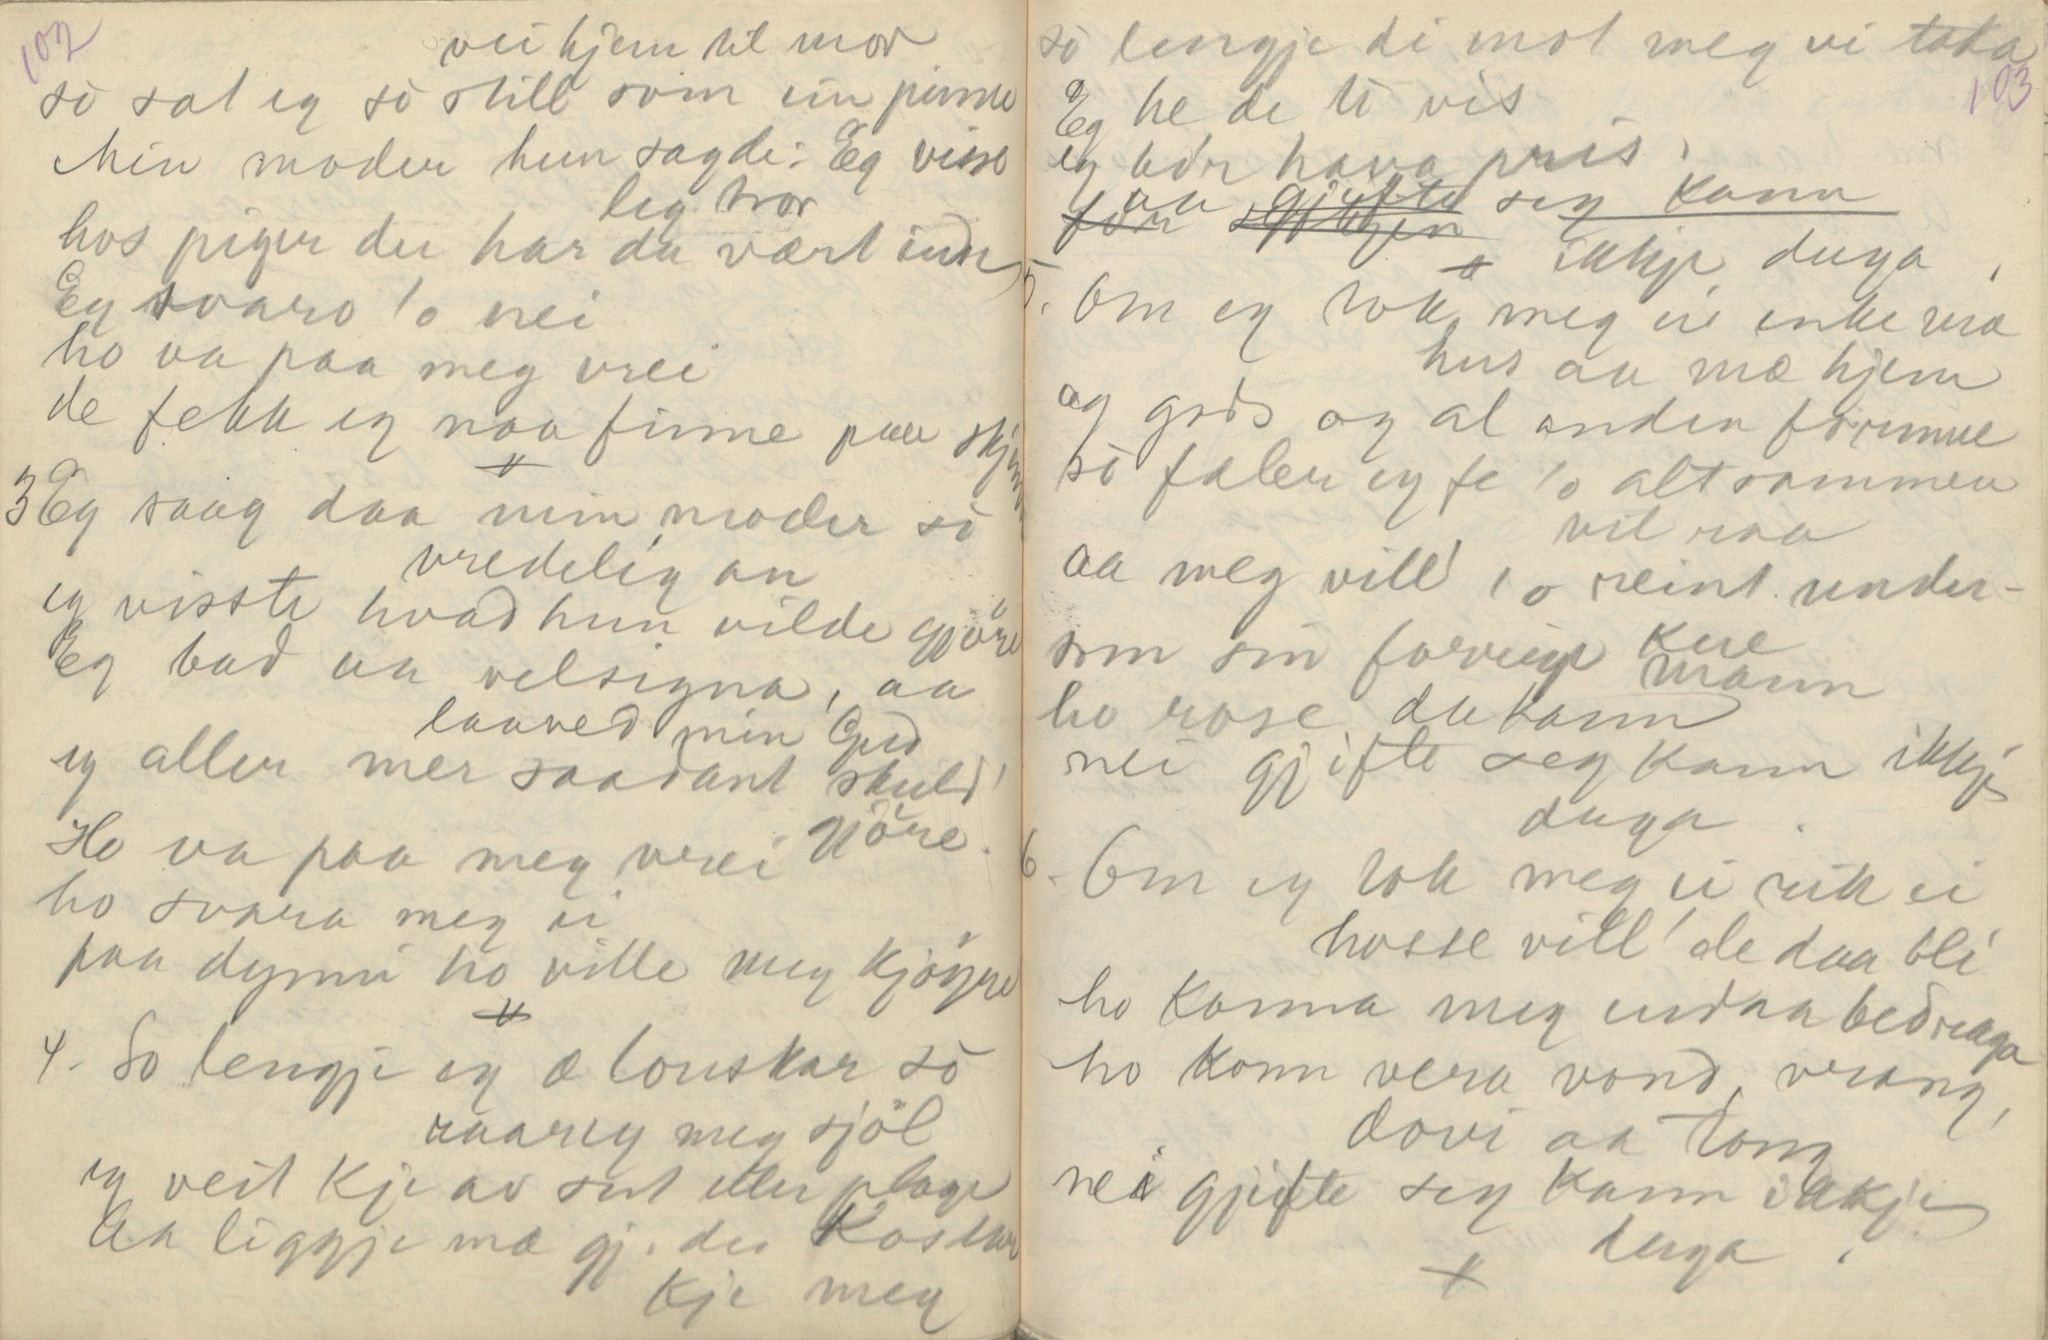 102
vei hjem til mor
sò sat eg sò still som ein pinne
Min moder hun sagde: Eg visse
leg tror
hos piger der har du vært inde
Eg svaro 'o nei
ho va paa meg vrei
de fekk eg naa finne paa
3 Eg saag daa min moder sò
vredelig an
eg visste hvad hun vilde gjöre
Eg bad aa velsigna, aa
laaved min Gud
eg aller mer saadant skuld'
gjöre.
Ho va paa meg vrei
ho svara meg ei
paa dynni ho ville meg kjöyre
4. So lengje eg æ louskar sò
raar eg meg sjöl
eg veit kje av sut eller plage
Aa liggje mæ gj. der kostar
kje meg
103
sò lengje di mot meg vi taka
Eg he de ti vis
eg bör hava pris.
för aa gjifte seg kann
ikkje duga.
5. Om eg tok meg ei enke mæ
hus aa mæ hjem
og gods og al anden formue
sò fæler eg fe 'o altsammen
vil raa
aa meg vill' 'o reint under-
kue
som sin forrige mann
ho rose da kann
nei gjifte seg kann ikkje
duga.
6. Om eg tok meg ei rik ei
hosse vill' de daa bli
ho kanna meg endaa bedraga
ho kann vera vond, vrang,
dovi aa tong
nei gjifte seg kann ikkje
duga.